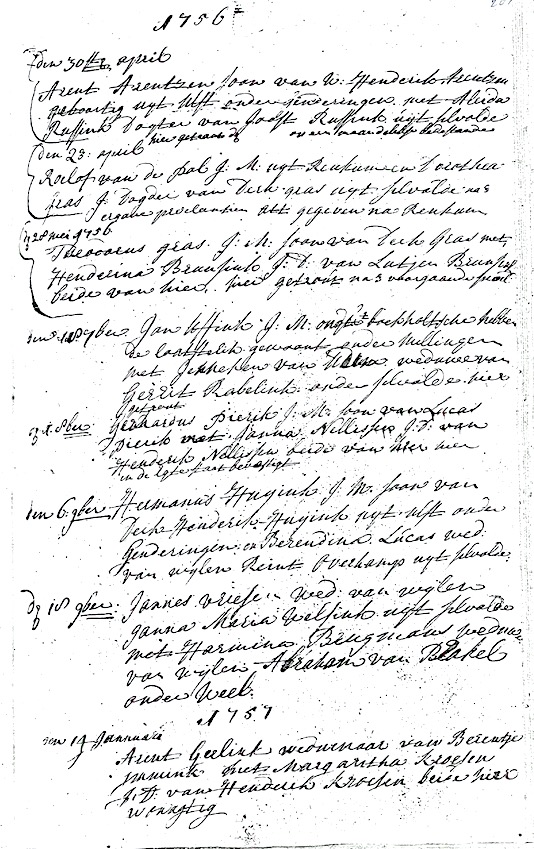 1756
den 30ste april
Arent Arentzen soon van W: Henderik Arentzen
geboortig uyt ulft onder genderingen met Alinda
Russink Dogter van Joost Russink uyt silvolde
hier getrouwt
den 23: april
Roelof van de Pol J: M: uyt Renkum en Dorothea
gras J: Dogter van Derk gras uyt silvolde na 3
ergane proclamatien att gegeven na Renkum
28 mei 1756
Theodorus gras J: M: soon van Derk Gras met
Henderina Bruusink J: D: van Lutjen Bruusink
beide van hier. hier getrout na 3 voorgaande
den 7ber Jan J: M: ongt boekholtsche hebbe
de laatstelik gewoont onder Millingen
met Jenneken van weduwe van
Gerrit Rabelink onder silvolde hier
getrout
8ber Gerhardus Dierik J: M: soon van Lucas
Dierik met Janna Nillissen J: D: van
Henderik Nillissen beide van hier hier
in de egte staat bevestigt
den 6 9ber Hermanus Huyink J: M. soon van
Derk Henderik Huyink uyt ulft onder
Genderingen en Berendina Lucas wed:
van wylen Reint Overkamp uyt silvolde.
18 9ber: Jannes vriesen wed: van wylen
Janna Maria Velsink uyt silvolde
met Harmina Brugmans weduwe
van wylen Abraham van Brakel
onder Weel.
1757
den 14 Januari
Arent Geelink weduwnaar van Berentje
immink met Margaritha Kroesen
J: D: van Henderik Kroesen beide hier
woonagtig